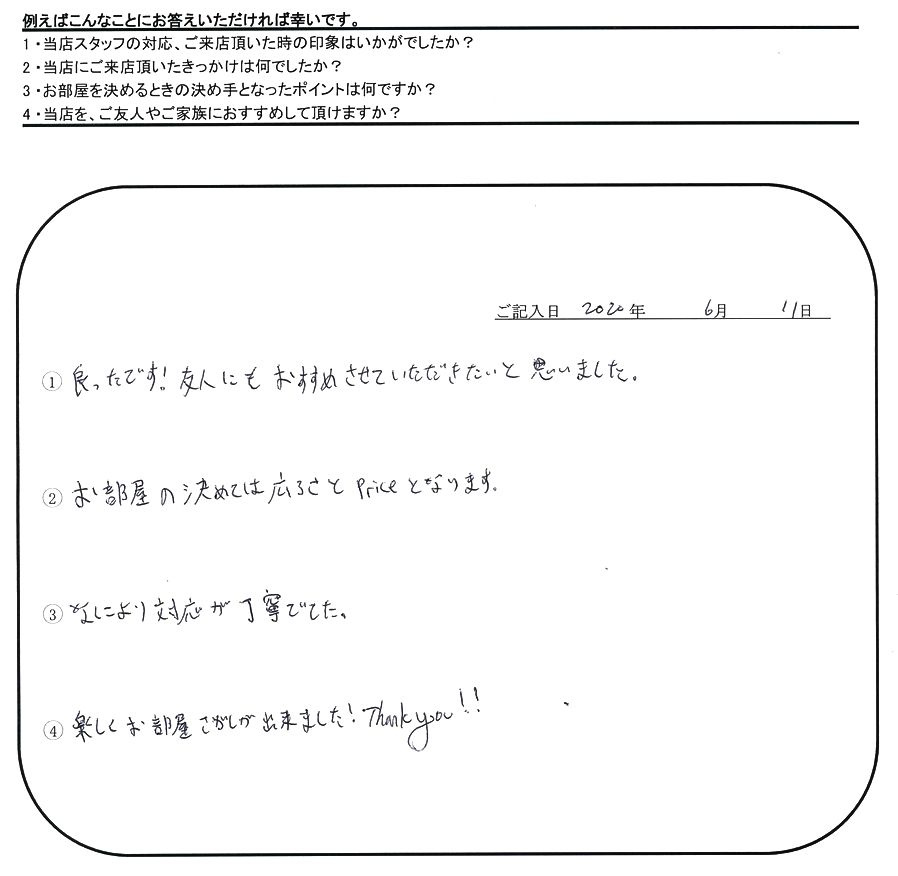 例えばこんなことにお答えいただければ幸いです。
1・当店スタッフの対応、ご来店頂いた時の印象はいかがでしたか？
2・当店にご来店頂いたきっかけは何でしたか？
3・お部屋を決めるときの決め手となったポイントは何ですか？
4・当店を、ご友人やご家族におすすめして頂けますか？
ご記入日 2020年 6月 11日
① 良ったです！友人にも おすすめさせていただきたいと 思いました。
② お部屋の決めては広るさと Priceとなります。
③ なにより対応が丁寧でした。
④ 楽しくお部屋さがしが出来ました！Thank you!!